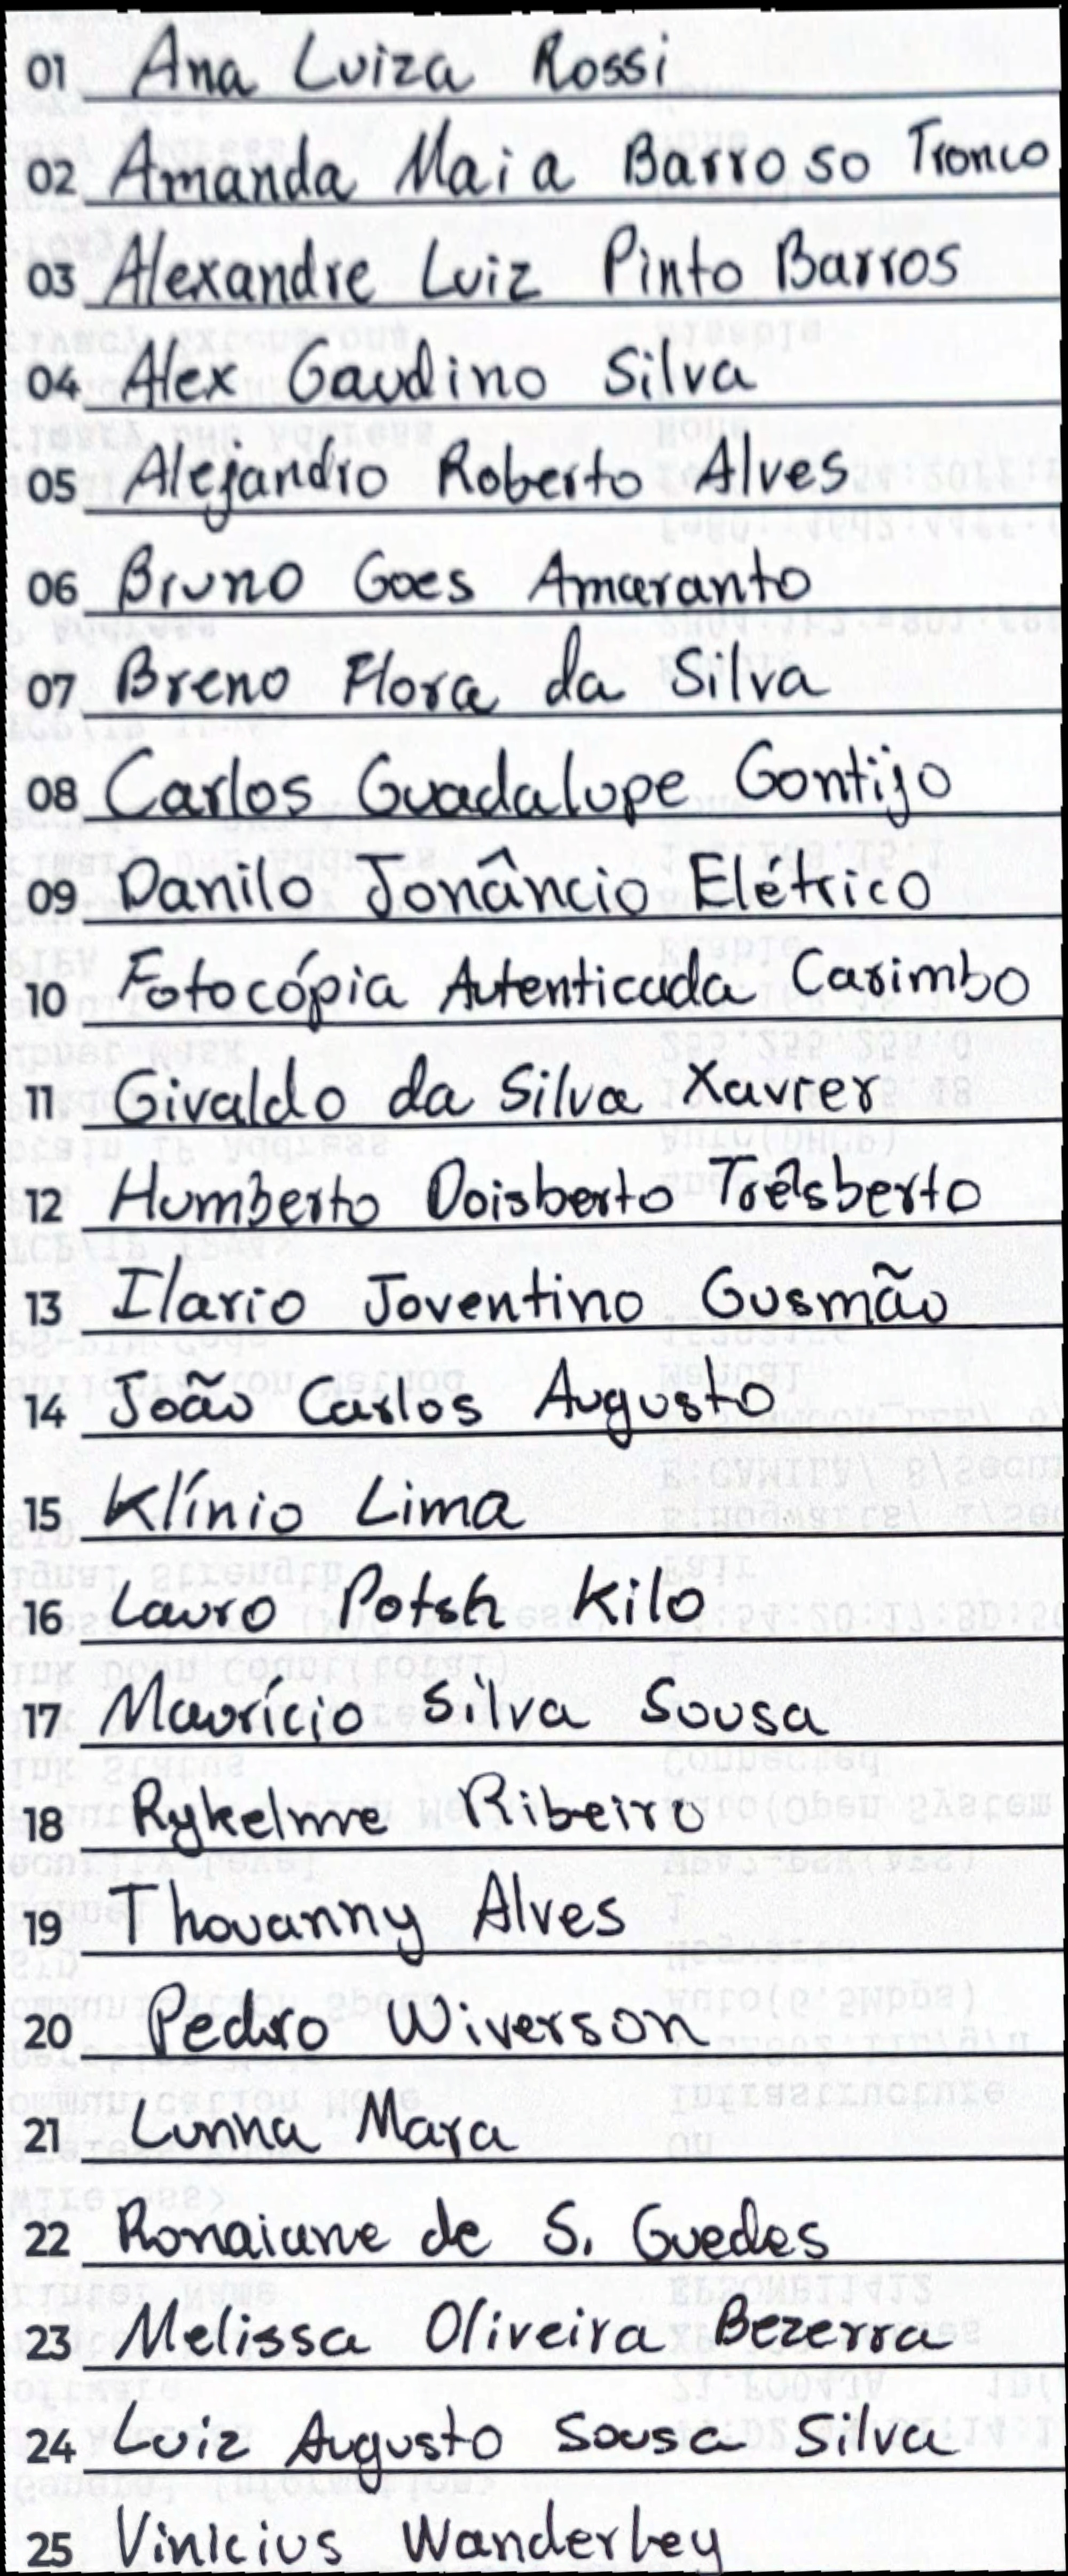 01 Ana Luiza Rossi
02 Amanda Maia Barroso Tronco
03 Alexandre Luiz Pinto Barros
04 Alex Gaudino Silva
05 Alejandro Roberto Alves
06 Bruno Goes Amaranto
07 Breno Flora da Silva
08 Carlos Guadalupe Gontijo
09 Danilo Jonâncio Elétrico
10 Fotocópia Autenticada Carimbo
11 Givaldo da Silva Xavier
12 Humberto Doisberto Trêsberto
13 Ilario Joventino Gusmão
14 João Carlos Augusto
15 Klínio Lima
16 Lauro Potsh Kilo
17 Maurício Silva Sousa
18 Rykelme Ribeiro
19 Thovanny Alves
20 Pedro Wiverson
21 Lunna Mara
22 Ronaiane de S. Guedes
23 Melissa Oliveira Bezerra
24 Luiz Augusto Sousa Silva
25 Vinicius Wanderley